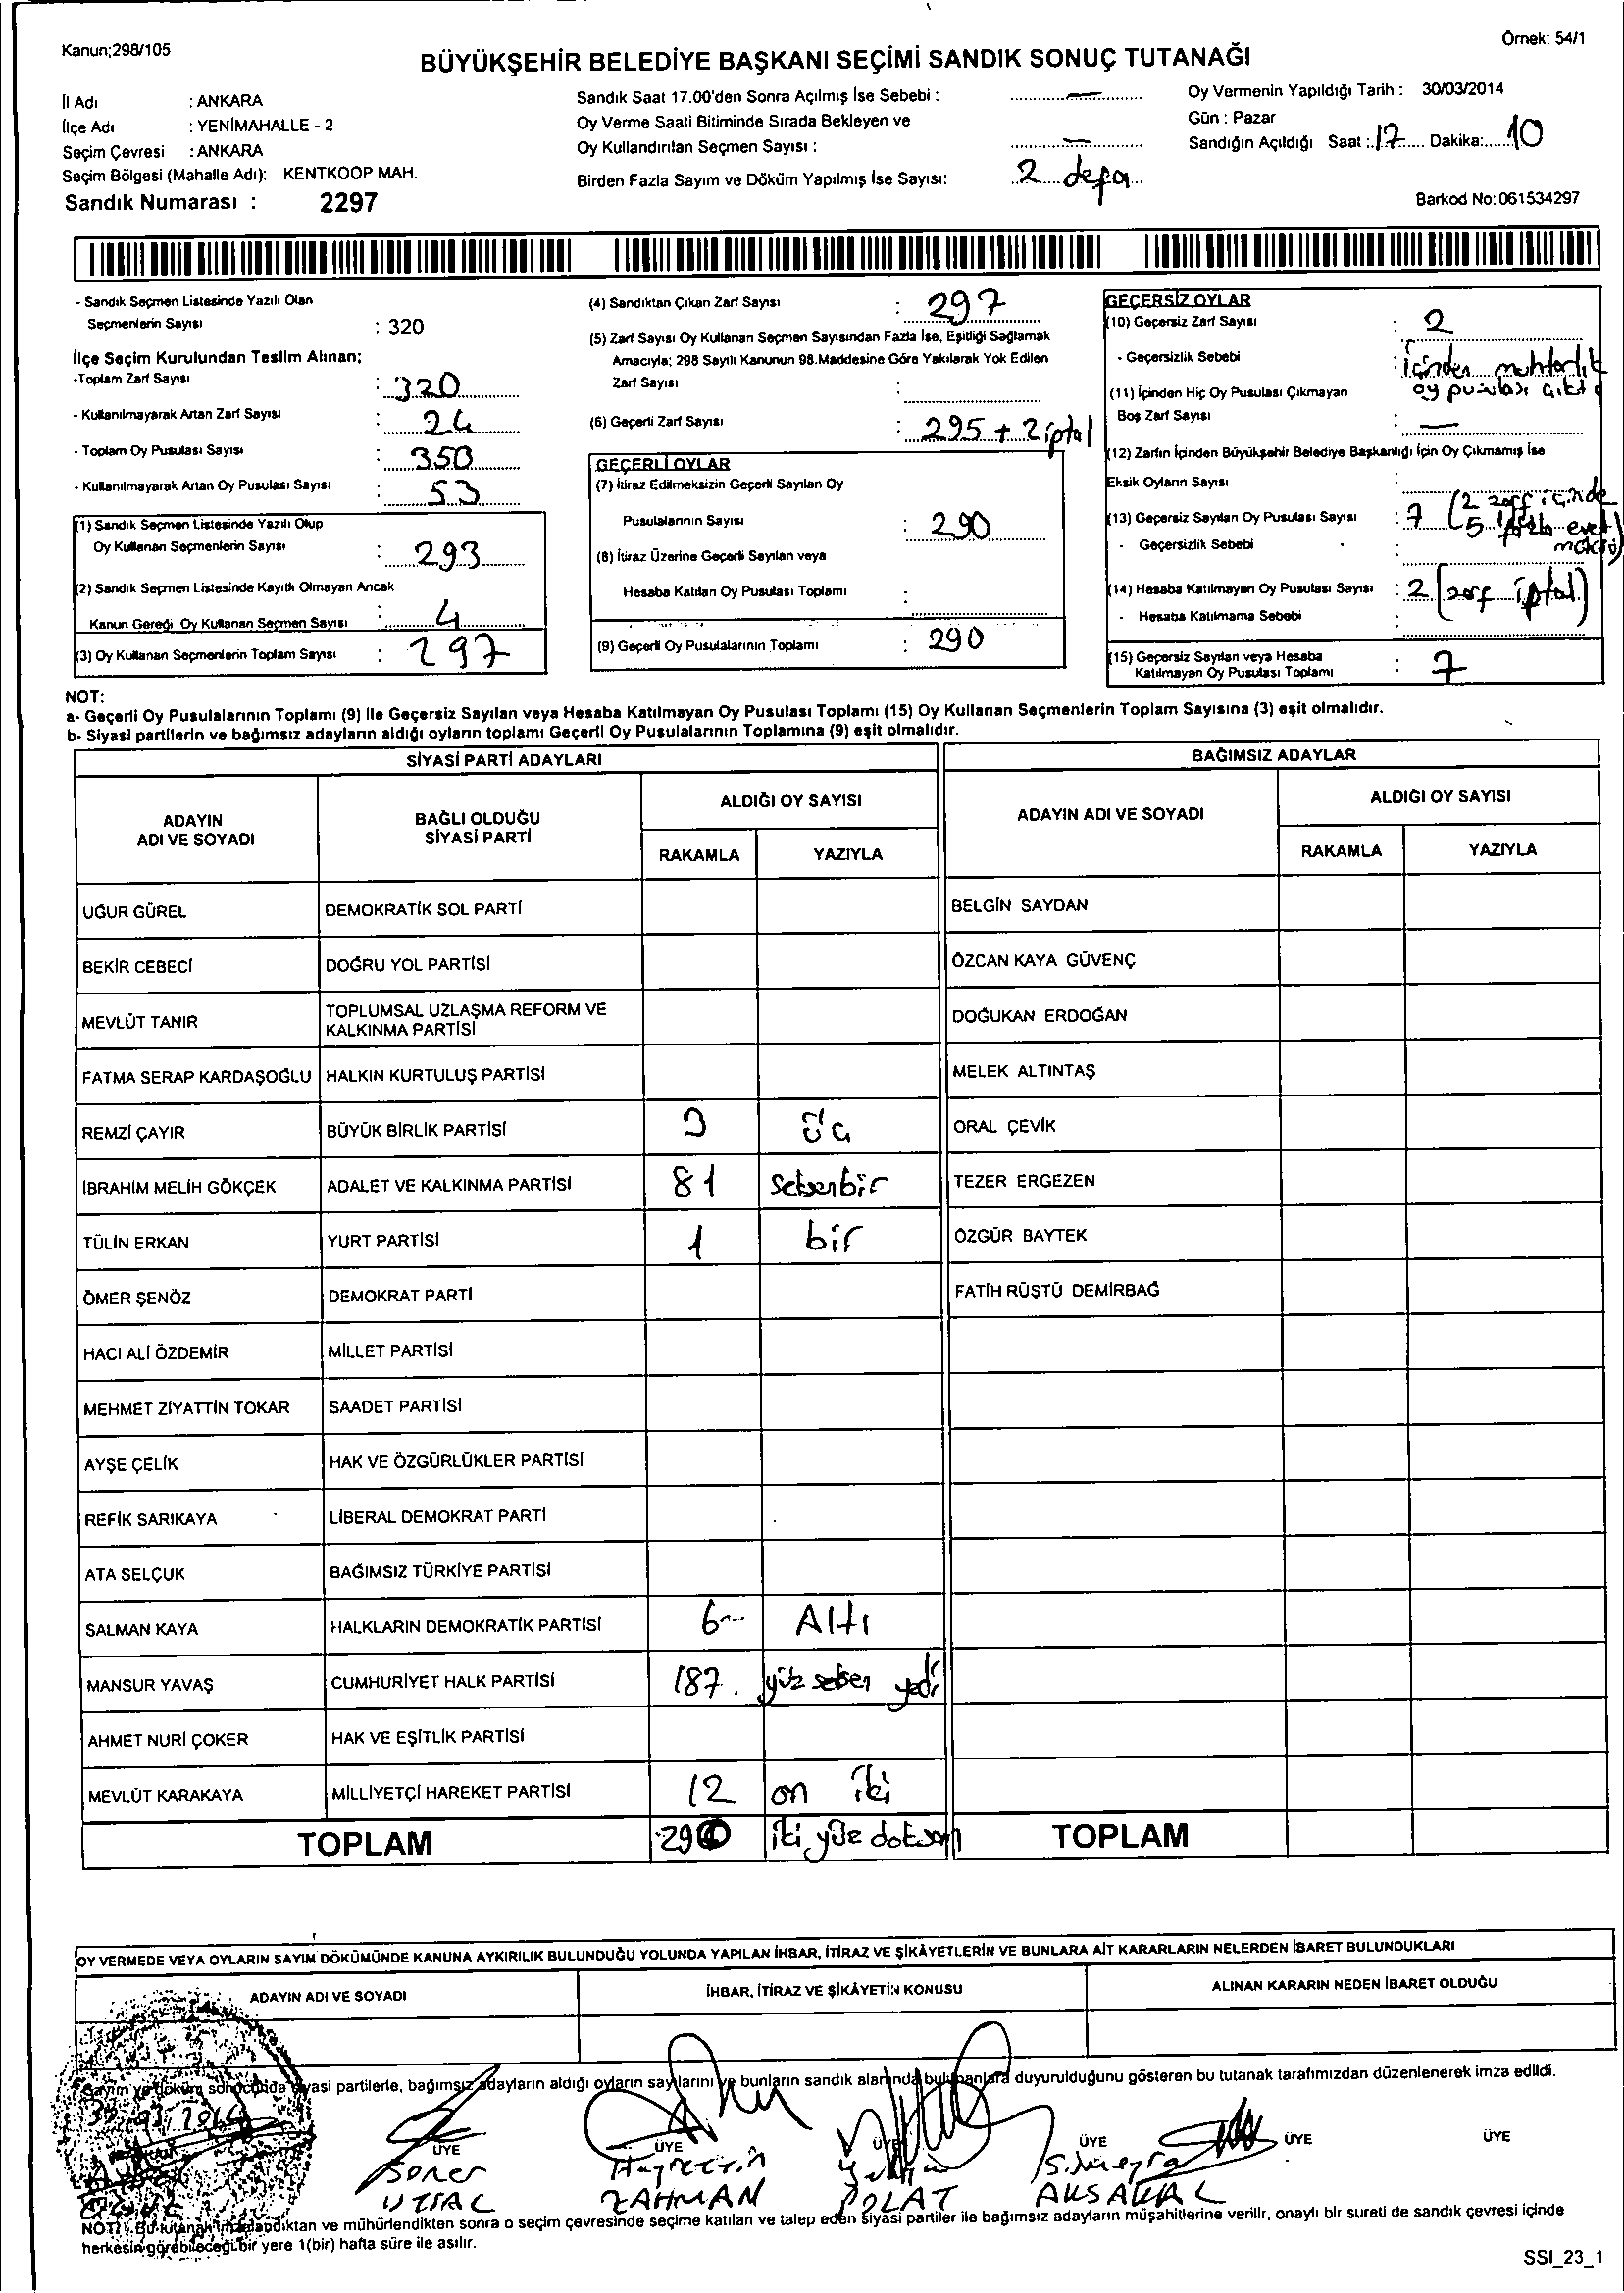 Kanun;298/105
Örnek: 54/1
BÜYÜKŞEHİR BELEDİYE BAŞKANI SEÇİMİ SANDIK SONUÇ TUTANAĞI
İl Adı : ANKARA
İlçe Adı : YENİMAHALLE - 2
Seçim Çevresi : ANKARA
Seçim Bölgesi (Mahalle Adı): KENTKOOP MAH.
Sandık Numarası : 2297
Sandık Saat 17.00'den Sonra Açılmış İse Sebebi : —
Oy Verme Saati Bitiminde Sırada Bekleyen ve
Oy Kullandırılan Seçmen Sayısı : —
Birden Fazla Sayım ve Döküm Yapılmış İse Sayısı: 2 defa
Oy Vermenin Yapıldığı Tarih : 30/03/2014
Gün : Pazar
Sandığın Açıldığı Saat : 17 Dakika: 10
Barkod No: 061534297
- Sandık Seçmen Listesinde Yazılı Olan
Seçmenlerin Sayısı : 320
İlçe Seçim Kurulundan Teslim Alınan;
-Toplam Zarf Sayısı : 320
- Kullanılmayarak Artan Zarf Sayısı : 24
- Toplam Oy Pusulası Sayısı : 350
- Kullanılmayarak Artan Oy Pusulası Sayısı : 53
(1) Sandık Seçmen Listesinde Yazılı Olup
Oy Kullanan Seçmenlerin Sayısı : 293
(2) Sandık Seçmen Listesinde Kayıtlı Olmayan Ancak
Kanun Gereği Oy Kullanan Seçmen Sayısı : 4
(3) Oy Kullanan Seçmenlerin Toplam Sayısı : 297
(4) Sandıktan Çıkan Zarf Sayısı : 297
(5) Zarf Sayısı Oy Kullanan Seçmen Sayısından Fazla İse, Eşitliği Sağlamak
Amacıyla; 298 Sayılı Kanunun 98.Maddesine Göre Yakılarak Yok Edilen
Zarf Sayısı :
(6) Geçerli Zarf Sayısı : 295 + 2 iptal
GEÇERLİ OYLAR
(7) İtiraz Edilmeksizin Geçerli Sayılan Oy
Pusulalarının Sayısı : 290
(8) İtiraz Üzerine Geçerli Sayılan veya
Hesaba Katılan Oy Pusulası Toplamı :
(9) Geçerli Oy Pusulalarının Toplamı : 290
GEÇERSİZ OYLAR
(10) Geçersiz Zarf Sayısı : 2
- Geçersizlik Sebebi : içinden muhtarlık
oy pusulası çıktı
(11) İçinden Hiç Oy Pusulası Çıkmayan
Boş Zarf Sayısı : —
(12) Zarfın İçinden Büyükşehir Belediye Başkanlığı İçin Oy Çıkmamış İse
Eksik Oyların Sayısı :
(13) Geçersiz Sayılan Oy Pusulası Sayısı : 7 (2 zarf içinde
5 fazla evet
- Geçersizlik Sebebi :
(14) Hesaba Katılmayan Oy Pusulası Sayısı : 2 (zarf iptal)
- Hesaba Katılmama Sebebi :
(15) Geçersiz Sayılan veya Hesaba
Katılmayan Oy Pusulası Toplamı : 7
NOT:
a- Geçerli Oy Pusulalarının Toplamı (9) ile Geçersiz Sayılan veya Hesaba Katılmayan Oy Pusulası Toplamı (15) Oy Kullanan Seçmenlerin Toplam Sayısına (3) eşit olmalıdır.
b- Siyasi partilerin ve bağımsız adayların aldığı oyların toplamı Geçerli Oy Pusulalarının Toplamına (9) eşit olmalıdır.
SİYASİ PARTİ ADAYLARI
BAĞIMSIZ ADAYLAR
ADAYIN ADI VE SOYADI
BAĞLI OLDUĞU SİYASİ PARTİ
ALDIĞI OY SAYISI
RAKAMLA YAZIYLA
ADAYIN ADI VE SOYADI
ALDIĞI OY SAYISI
RAKAMLA YAZIYLA
UĞUR GÜREL DEMOKRATİK SOL PARTİ BELGİN SAYDAN
BEKİR CEBECİ DOĞRU YOL PARTİSİ ÖZCAN KAYA GÜVENÇ
MEVLÜT TANIR TOPLUMSAL UZLAŞMA REFORM VE KALKINMA PARTİSİ DOĞUKAN ERDOĞAN
FATMA SERAP KARDAŞOĞLU HALKIN KURTULUŞ PARTİSİ MELEK ALTINTAŞ
REMZİ ÇAYIR BÜYÜK BİRLİK PARTİSİ 3 üç ORAL ÇEVİK
İBRAHİM MELİH GÖKÇEK ADALET VE KALKINMA PARTİSİ 81 seksenbir TEZER ERGEZEN
TÜLİN ERKAN YURT PARTİSİ 1 bir ÖZGÜR BAYTEK
ÖMER ŞENÖZ DEMOKRAT PARTİ FATİH RÜŞTÜ DEMİRBAĞ
HACI ALİ ÖZDEMİR MİLLET PARTİSİ
MEHMET ZİYATTİN TOKAR SAADET PARTİSİ
AYŞE ÇELİK HAK VE ÖZGÜRLÜKLER PARTİSİ
REFİK SARIKAYA LİBERAL DEMOKRAT PARTİ
ATA SELÇUK BAĞIMSIZ TÜRKİYE PARTİSİ
SALMAN KAYA HALKLARIN DEMOKRATİK PARTİSİ 6 Altı
MANSUR YAVAŞ CUMHURİYET HALK PARTİSİ 187 yüz seksen yedi
AHMET NURİ ÇOKER HAK VE EŞİTLİK PARTİSİ
MEVLÜT KARAKAYA MİLLİYETÇİ HAREKET PARTİSİ 12 on iki
TOPLAM 290 iki yüz doksan TOPLAM
OY VERMEDE VEYA OYLARIN SAYIM DÖKÜMÜNDE KANUNA AYKIRILIK BULUNDUĞU YOLUNDA YAPILAN İHBAR, İTİRAZ VE ŞİKÂYETLERİN VE BUNLARA AİT KARARLARIN NELERDEN İBARET BULUNDUKLARI
ADAYIN ADI VE SOYADI İHBAR, İTİRAZ VE ŞİKÂYETİN KONUSU ALINAN KARARIN NEDEN İBARET OLDUĞU
Sayım ve döküm sonucunda siyasi partilerle, bağımsız adayların aldığı oyların sayılarını ve bunların sandık alanında bulunanlara duyurulduğunu gösteren bu tutanak tarafımızdan düzenlenerek imza edildi.
ÜYE ÜYE ÜYE ÜYE ÜYE ÜYE
Soner
ZAHMAN POLAT AKSAKAL
NOT: Bu tutanak imzalandıktan ve mühürlendikten sonra o seçim çevresinde seçime katılan ve talep eden siyasi partiler ile bağımsız adayların müşahitlerine verilir, onaylı bir sureti de sandık çevresi içinde
herkesin görebileceği bir yere 1(bir) hafta süre ile asılır.
SSI_23_1